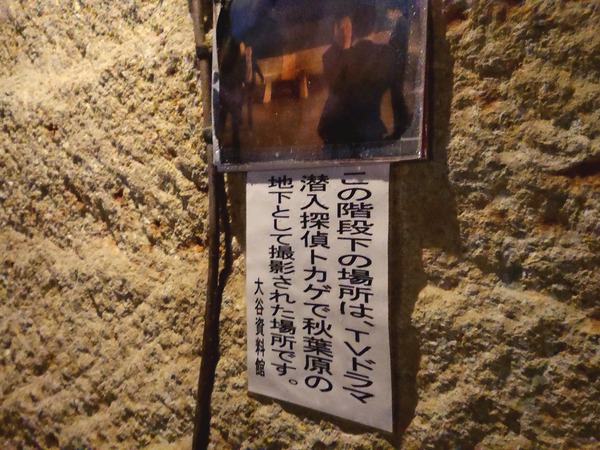 この階段下の場所は、TVドラマ
潜入探偵トカゲで秋葉原の
地下として撮影された場所です。
大谷資料館